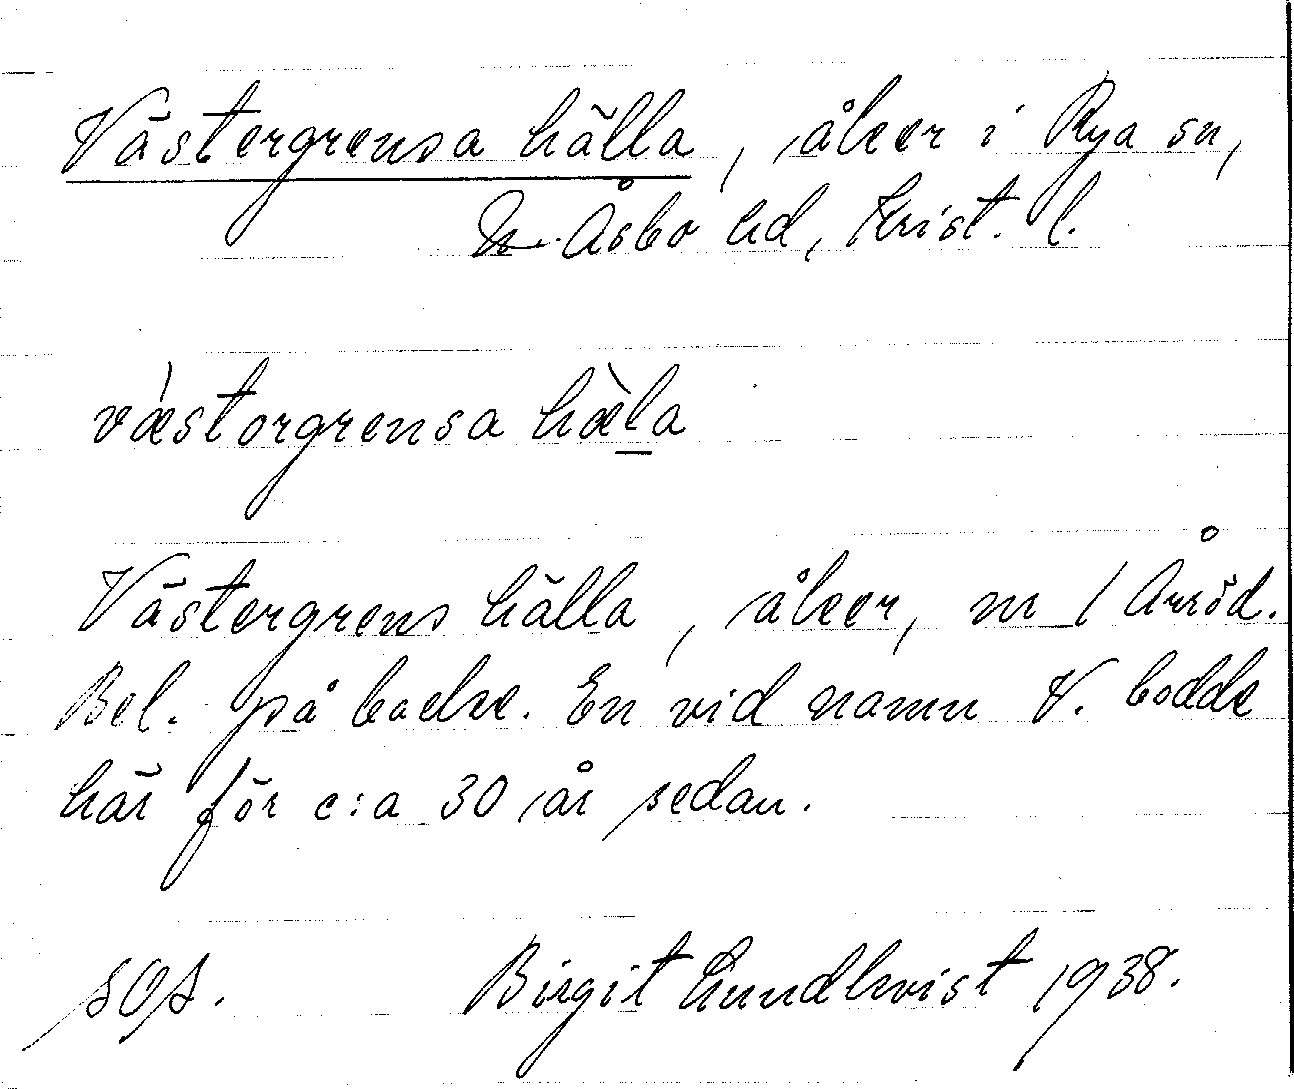 Västergrensa hälla, åker i Rya sn,
N. Åsbo hd, Krist. l.
vǽstorgrensa hæ̀la
Västergrens hälla, åker, m / Årröd.
Bel. på backe. En vid namn V. bodde
här för c:a 30 år sedan.
Birgit Lundkvist 1938.